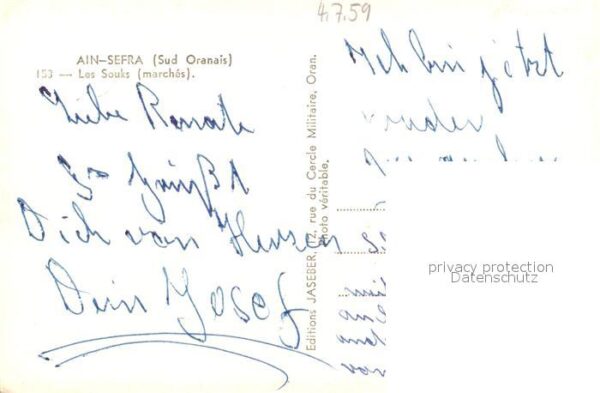 4.7.59
AIN-SEFRA (Sud Oranais)
153 — Les Souks (marchés).
Liebe Renate
Es grüßt
Dich von Herzen
Dein Josef
Editions JASEBER, 12, rue du Cercle Militaire, Oran.
Photo véritable.
Ich bin jetzt
wieder
privacy protection
Datenschutz